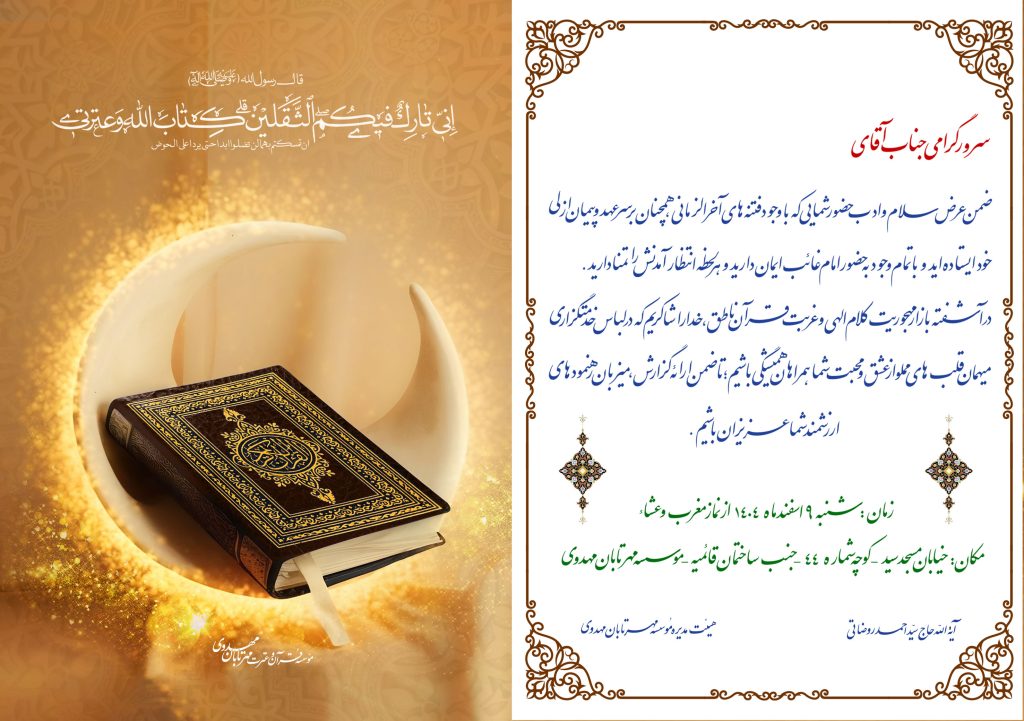 قال رسول الله (صلی الله علیه و آله)
إِنّي تارِكٌ فيكُمُ الثَّقَلَيْنِ كِتابَ اللهِ وَعِترَتي
ان تمسکتم بهما لن تضلوا ابدا حتی یردا علی الحوض
القرآن الكريم
موسسه قرآن و عترت مهر تابان مهدوی
سرور گرامی جناب آقای
ضمن عرض سلام و ادب حضور شمایی که با وجود فتنه های آخرالزمانی همچنان بر سر عهد و پیمان ازلی
خود ایستاده اید و با تمام وجود به حضور امام غائب ایمان دارید و هر لحظه انتظار آمدنش را تمنا دارید .
در آشفته بازار مهجوریت کلام الهی و غربت قرآن ناطق، خدا را شاکریم که در لباس خدمتگزاری
میهمان قلب های مملو از عشق و محبت شما همراهان همیشگی باشیم؛ تا ضمن ارائه گزارش، میزبان رهنمود های
ارزشمند شما عزیزان باشیم .
زمان : شنبه ۹ اسفند ماه ۱۴۰۴ از نماز مغرب و عشاء
مکان: خیابان مسجد سید - کوچه شماره ۴۴ - جنب ساختمان قائمیه - مؤسسه مهر تابان مهدوی
آیة الله حاج سیّد احمد روضاتی
هیئت مدیره مؤسسه مهر تابان مهدوی